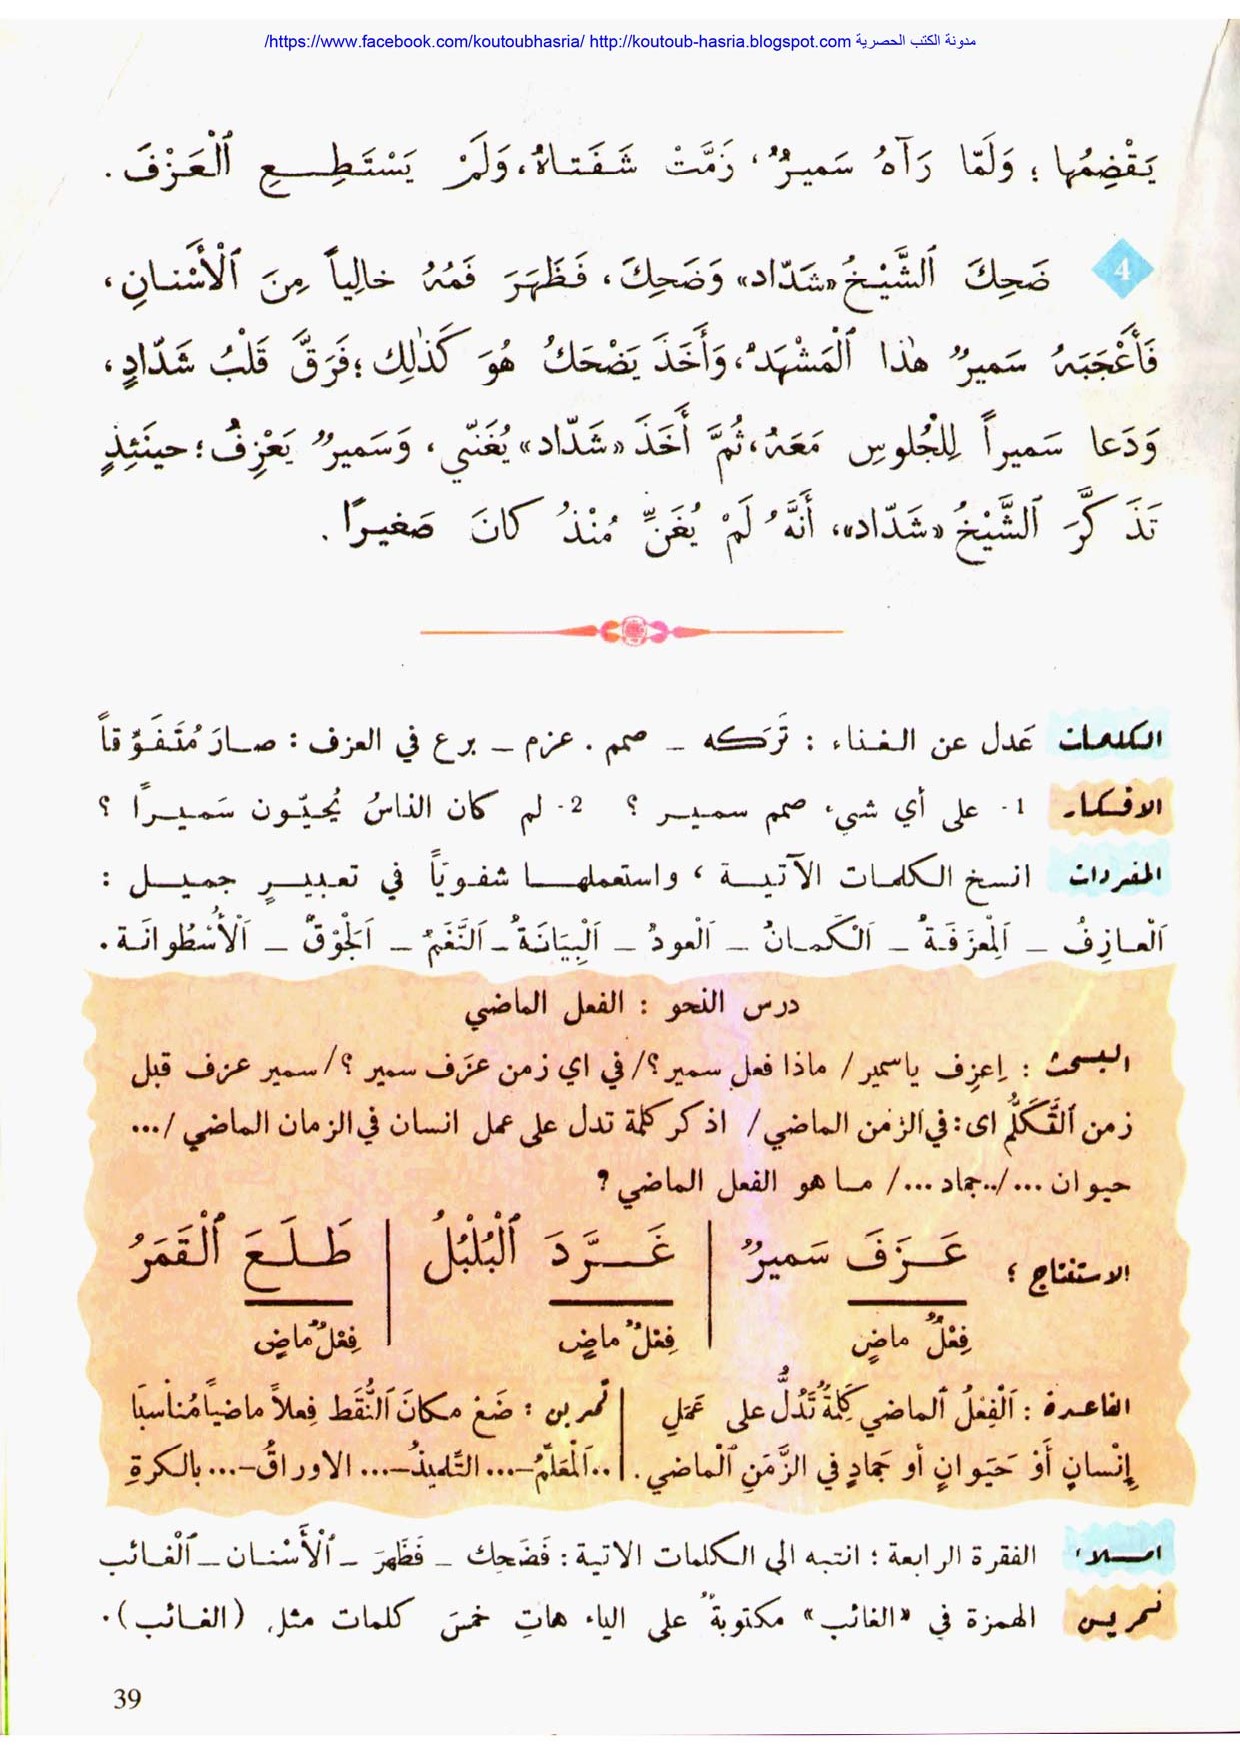 https://www.facebook.com/koutoubhasria/ http://koutoub-hasria.blogspot.com مدونة الكتب الحصرية/
يَقْضِمُها ؛ وَلَمّا رَآهُ سَميرٌ، زَمَّتْ شَفَتاهُ، وَلَمْ يَسْتَطِعِ ٱلْعَزْفَ .
4 ضَحِكَ ٱلشَّيْخُ «شَدّاد» وَضَحِكَ، فَظَهَرَ فَمُهُ خالِياً مِنَ ٱلْأَسْنانِ،
فَأَعْجَبَهُ سَميرٌ هٰذا ٱلْمَشْهَدُ، وَأَخَذَ يَضْحَكُ هُوَ كَذٰلِكَ ؛ فَرَقَّ قَلْبُ شَدّادٍ،
وَدَعا سَميراً لِلْجُلوسِ مَعَهُ، ثُمَّ أَخَذَ «شَدّاد» يُغَنّي، وَسَميرٌ يَعْزِفُ ؛ حينَئِذٍ
تَذَكَّرَ ٱلشَّيْخُ «شَدّاد»، أَنَّهُ لَمْ يُغَنِّ مُنْذُ كانَ صَغيرًا .
الكلمات عَدل عن الغناء : تَرَكه ـ صمم . عزم ـ برع في العزف : صارَ مُتَفَوِّقاً
الافكار 1- على أي شيء صمم سمير ؟ 2- لم كان الناسُ يُحيّون سَميرًا ؟
المفردات انسخ الكلمات الآتية ، واستعملها شفويّاً في تعبيرٍ جميل :
اَلْعازِفُ ـ اَلْمِعْزَفَةُ ـ اَلْكَمانُ ـ اَلْعودُ ـ اَلْبِيَانَةُ ـ اَلنَّغَمُ ـ اَلْجَوْقُ ـ اَلْأُسْطُوانَة .
درس النحو : الفعل الماضي
البحث : اِعزِف ياسمير / ماذا فعل سمير ؟/ في اي زمن عزَف سمير ؟/ سمير عزف قبل
زمن ٱلتَّكَلُّم اى : في الزمن الماضي / اذكر كلمة تدل على عمل انسان في الزمان الماضي /...
حيوان .../..جماد .../ ما هو الفعل الماضي ؟
الاستنتاج ؛ عَزَفَ سَميرٌ | غَرَّدَ ٱلْبُلْبُلُ | طَلَعَ ٱلْقَمَرُ
فِعْلٌ ماضٍ | فِعْلٌ ماضٍ | فِعْلٌ ماضٍ
القاعدة : اَلْفِعْلُ ٱلماضي كَلِمَةٌ تَدُلُّ على عَمَلِ
إِنْسانٍ أَوْ حَيَوانٍ أو جَمادٍ في الزَّمَنِ ٱلْماضي .
تمرين : ضَعْ مكانَ ٱلنُّقَط فِعلاً ماضياً مُناسبًا
..اَلْمعَلّمُ-... التّلميذُ-... الاوراقُ-... بالكرةِ
املاء الفقرة الرابعة ؛ انتبه الى الكلمات الاتية : فَضَحِك ـ فَظَهَرَ ـ ٱلْأَسْنان ـ ٱلْغائب
تمرين الهمزة في «الغائب» مكتوبةٌ على الياء هاتِ خمسَ كلمات مثل (الغائب) .
39